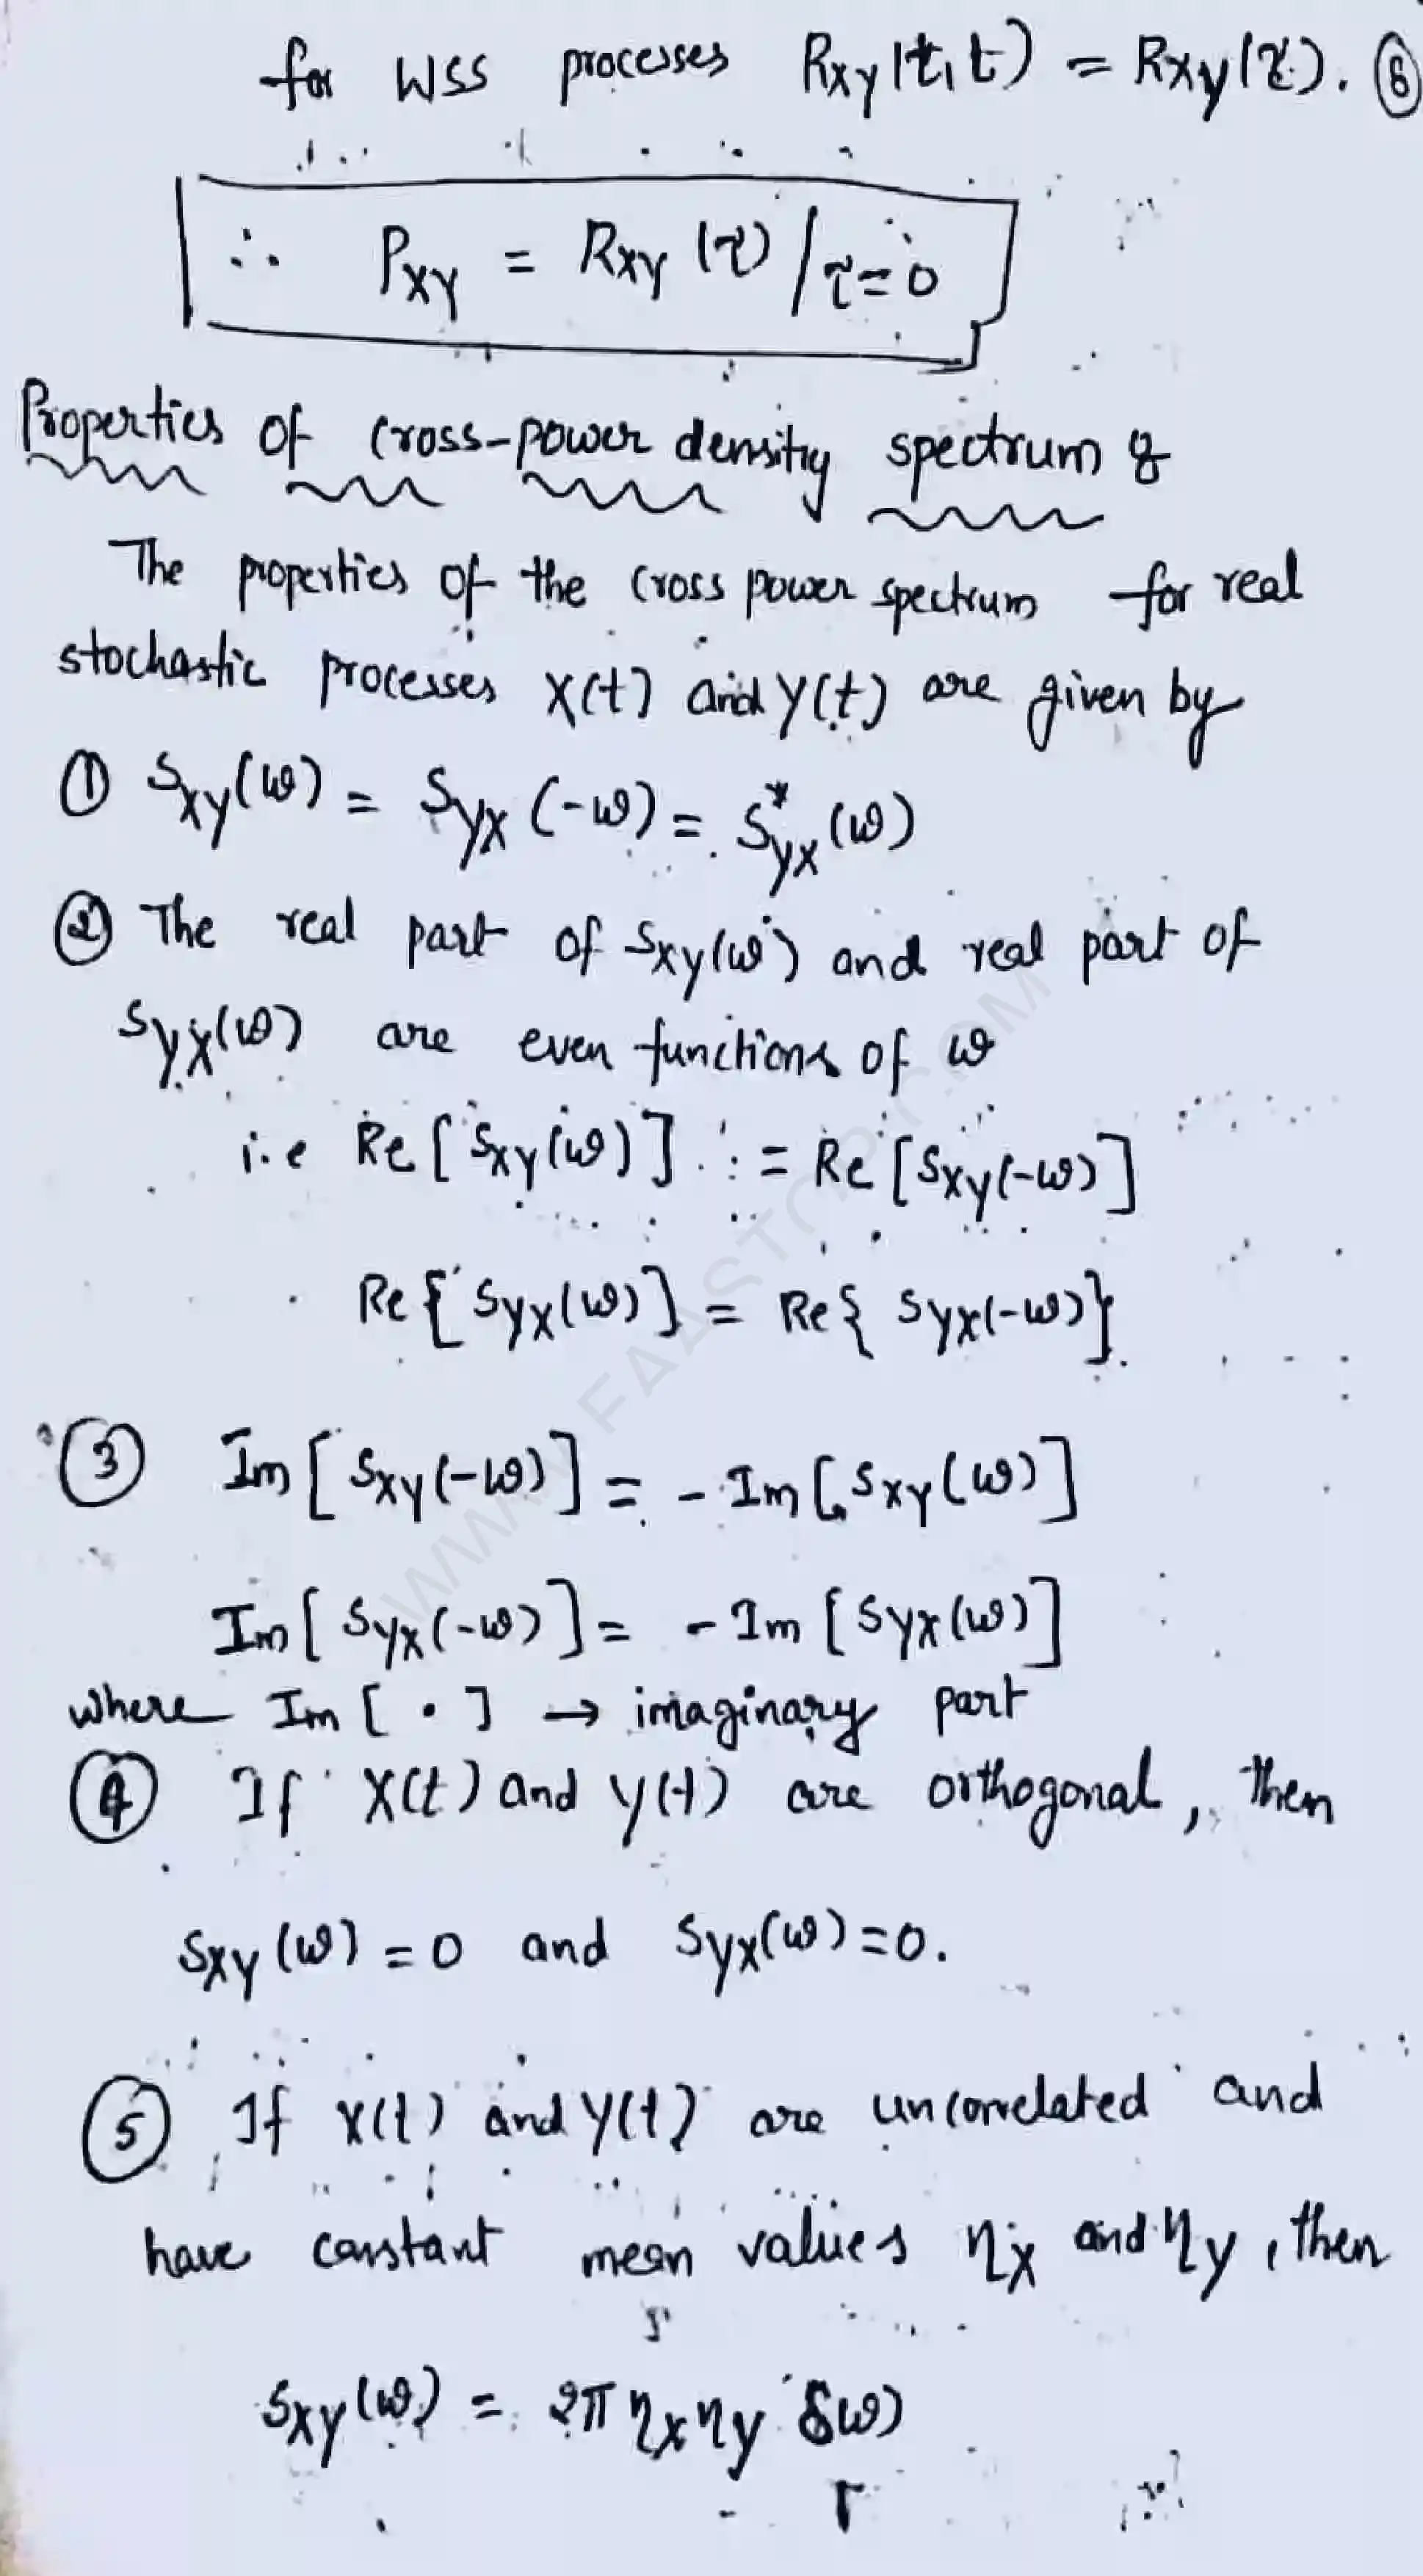 for WSS processes Rxy(t,t) = Rxy(τ). ⑥
∴ Pxy = Rxy (τ) / τ=0
Properties of cross-power density spectrum :
The properties of the cross power spectrum for real
stochastic processes X(t) and Y(t) are given by
① Sxy(ω) = Syx (-ω) = S*yx (ω)
② The real part of Sxy(ω) and real part of
Syx(ω) are even functions of ω
i.e Re [Sxy(ω)] = Re [Sxy(-ω)]
Re{ Syx(ω)} = Re{ Syx(-ω)}
③ Im [Sxy(-ω)] = - Im [Sxy(ω)]
Im [Syx(-ω)] = - Im [Syx(ω)]
where Im [ • ] → imaginary part
④ If X(t) and Y(t) are orthogonal, then
Sxy (ω) = 0 and Syx(ω) = 0.
⑤ If X(t) and Y(t) are uncorrelated and
have constant mean values ηx and ηy, then
Sxy(ω) = 2π ηx ηy δω)